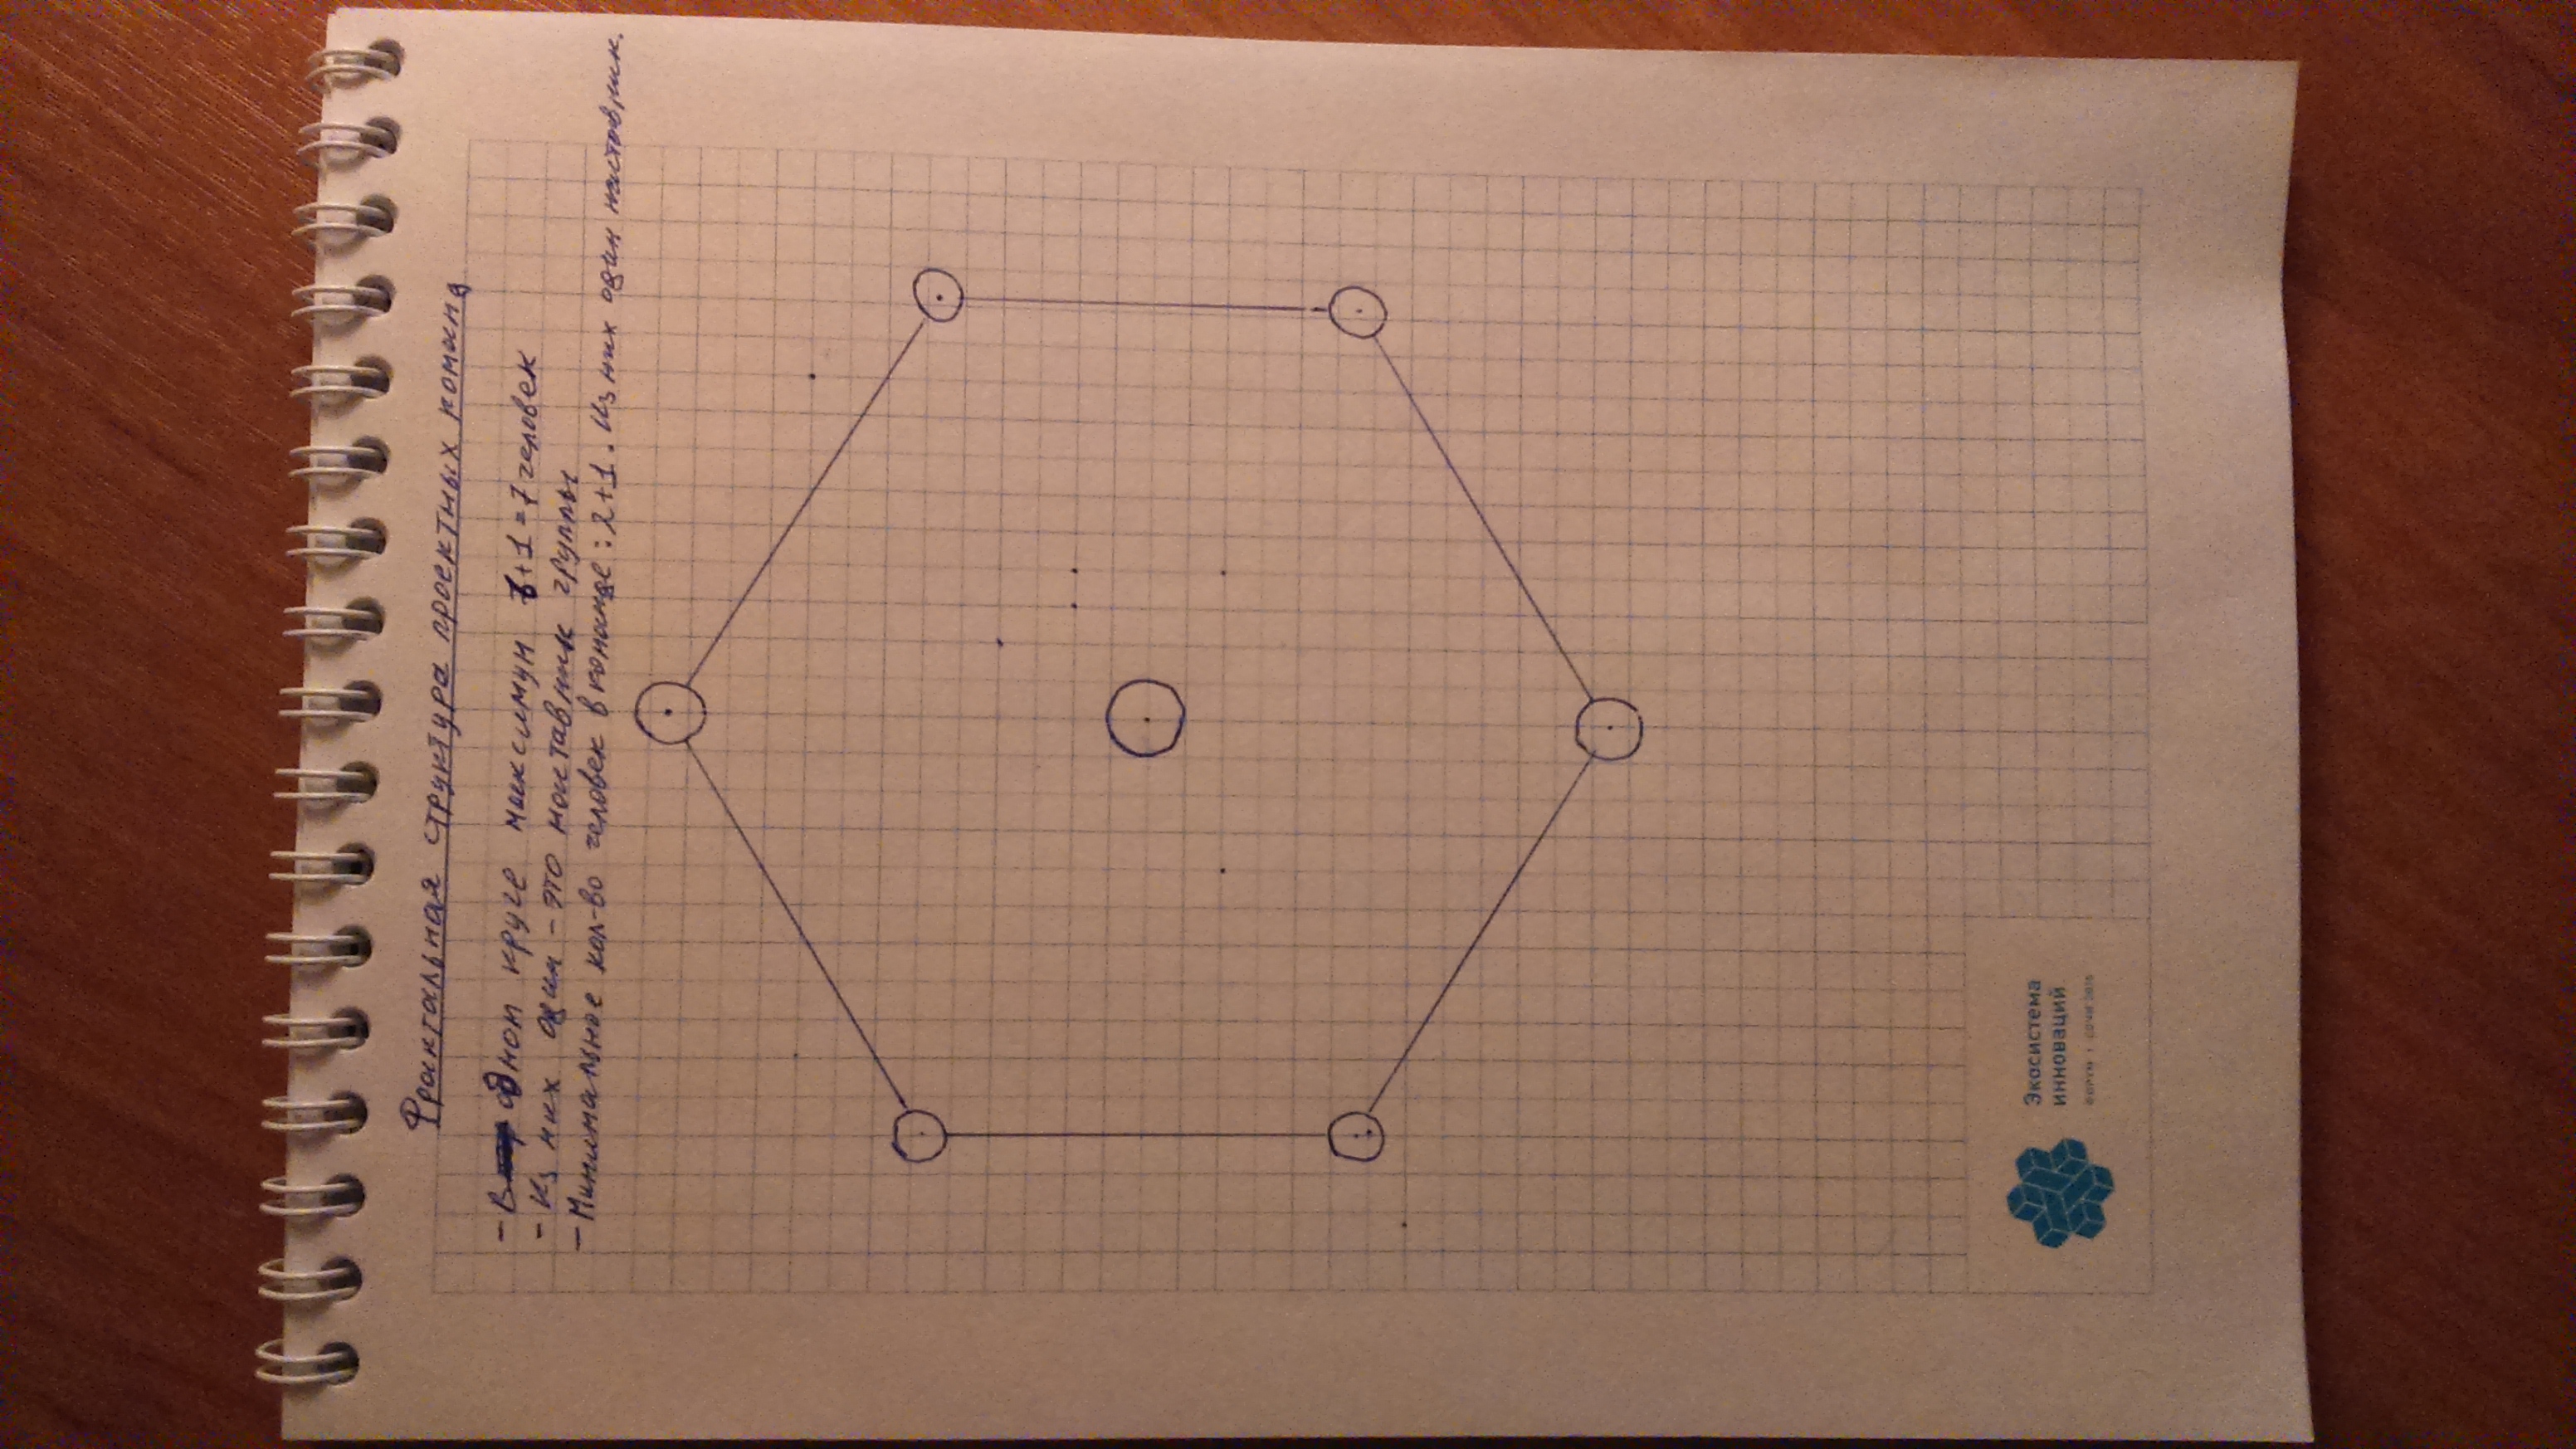 Фрактальная структура проектных команд
- В одном круге максимум 6+1=7 человек
- Из них один - это наставник группы
- Минимальное кол-во человек в команде: 2+1. Из них один наставник.
Экосистема
инноваций